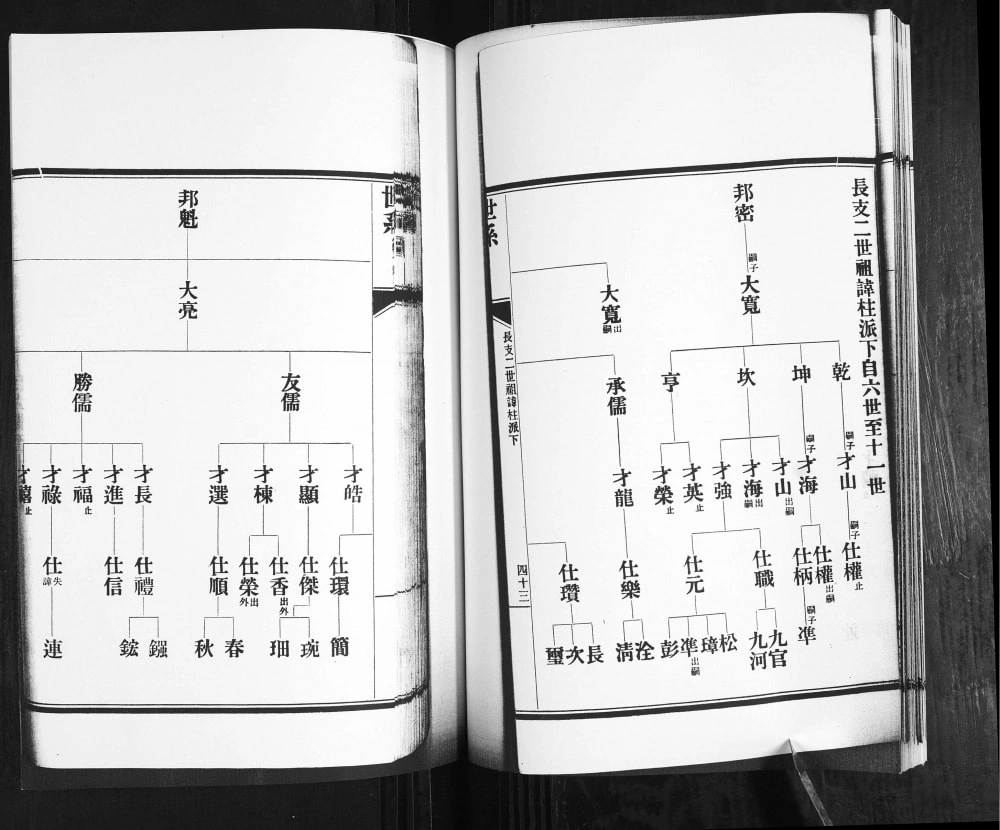 長支二世祖諱柱派下自六世至十一世
邦密
嗣子 大寬
大寬 出嗣
乾
坤
坎
亨
承儒
嗣子 才山
嗣子 才海
才山 出嗣
才海 出嗣
才強
才英 止
才榮 止
才龍
嗣子 仕權 止
仕權 出嗣
仕柄
仕職
仕元
仕樂
仕瓚
嗣子 準
九官
九河
松
璋
準 出嗣
彭
洤
清
長
次
璽
世系
長支二世祖諱柱派下
四十三
世系
邦魁
大亮
友儒
勝儒
才皓
才顯
才棟
才選
才長
才進
才福 止
才祿
才禧 止
仕環
仕傑
仕香 出外
仕榮 出外
仕順
仕禮
仕信
仕 失諱
簡
琬
珊
春
秋
鏹
鋐
連